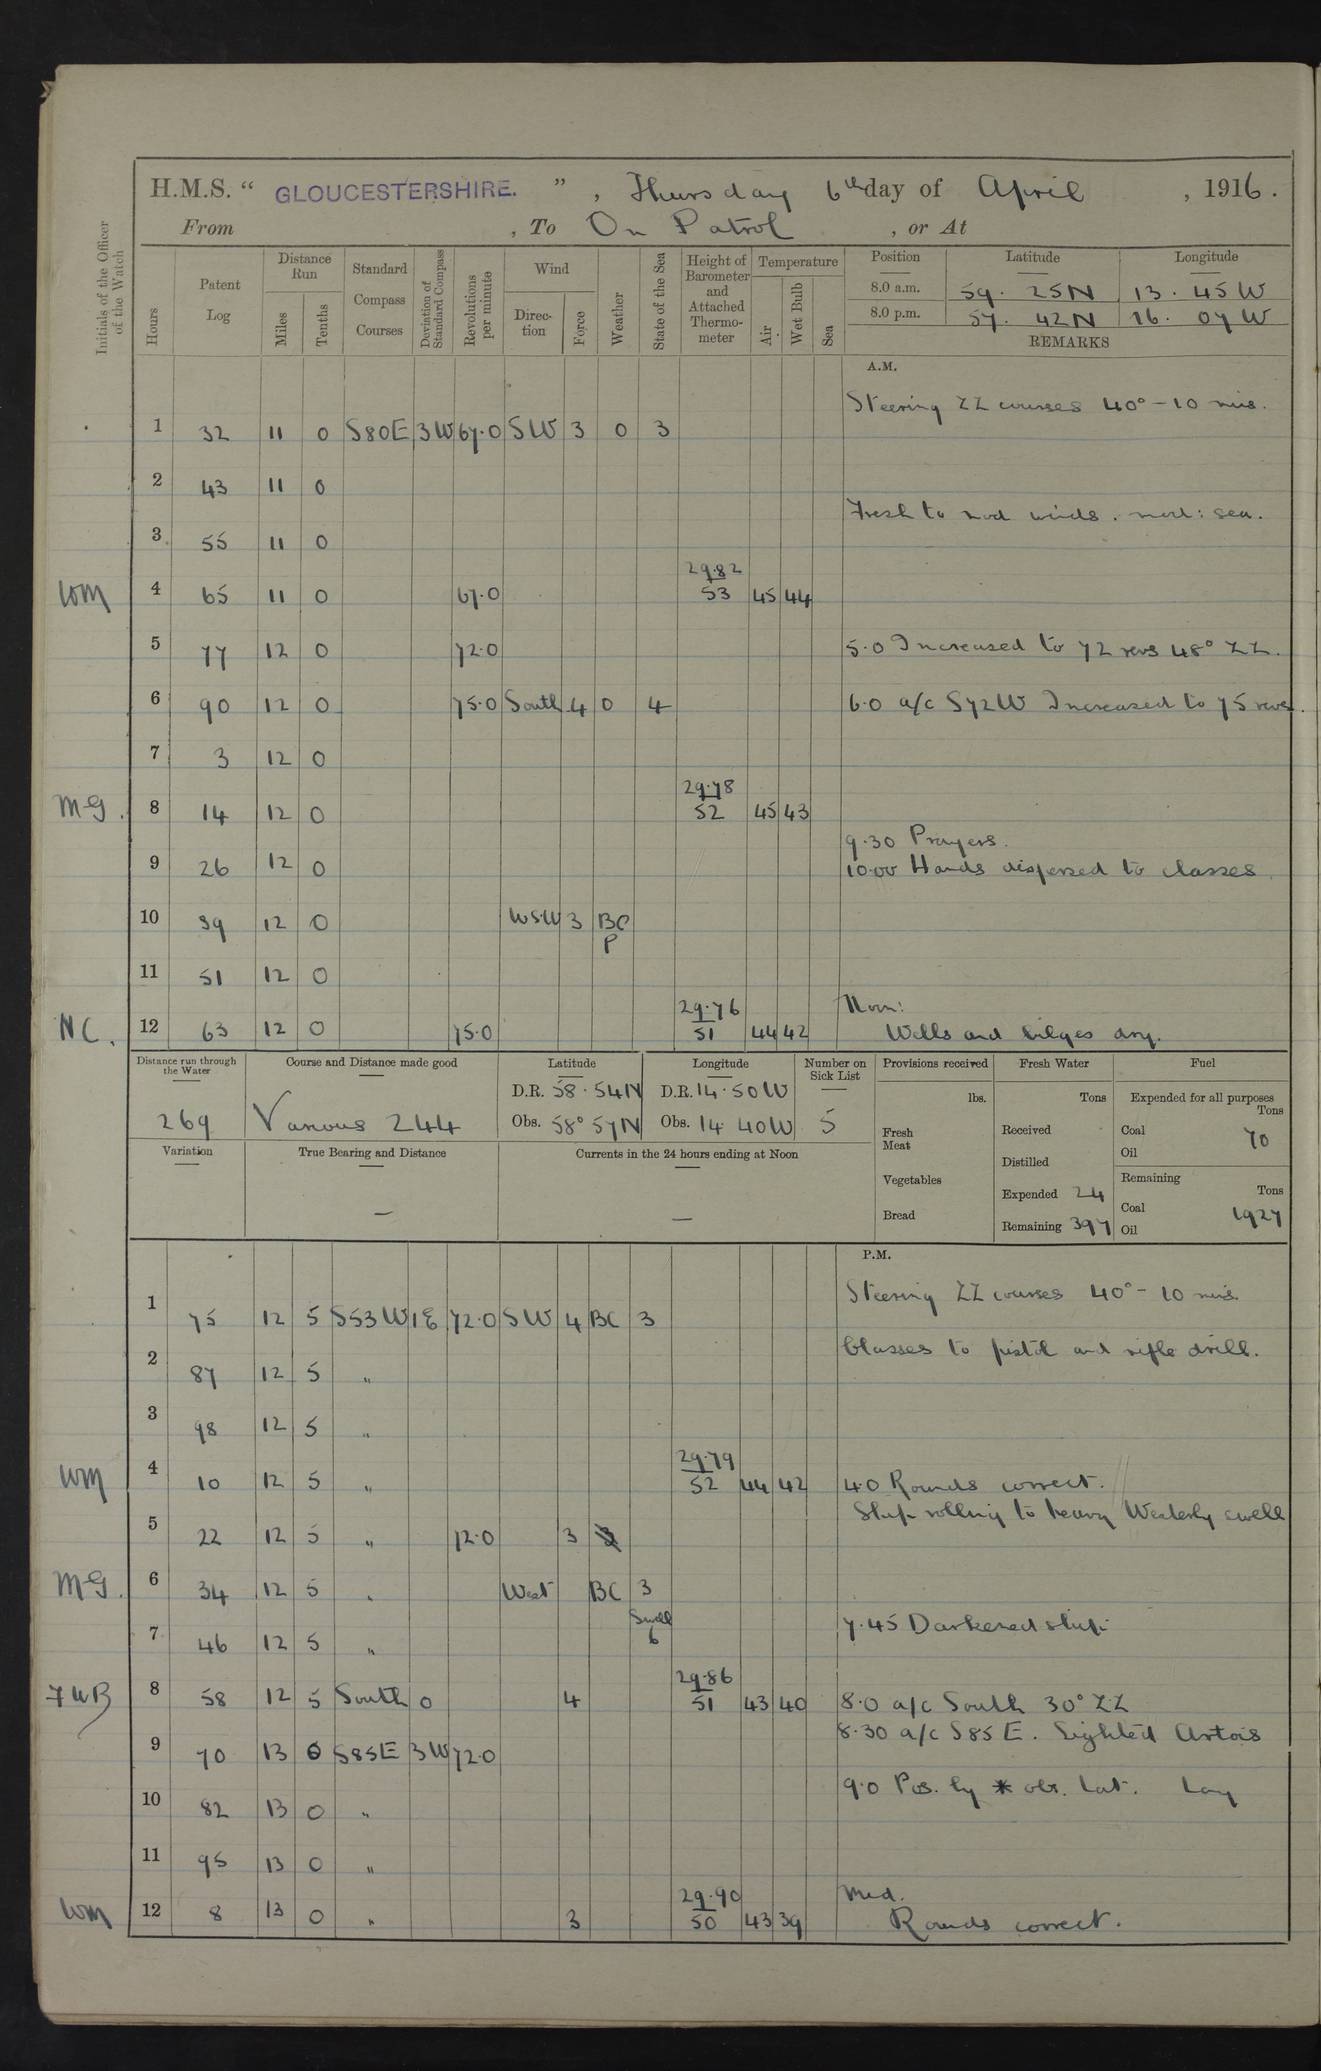 H.M.S. “ GLOUCESTERSHIRE. ” , Thursday 6th day of April , 1916.
From , To On Patrol , or At
Initials of the Officer of the Watch
Hours
Patent Log
Distance Run
Miles
Tenths
Standard Compass Courses
Deviation of Standard Compass
Revolutions per minute
Wind
Direction
Force
Weather
State of the Sea
Height of Barometer and Attached Thermometer
Temperature
Air
Wet Bulb
Sea
Position Latitude Longitude
8.0 a.m. 59. 25N 13. 45W
8.0 p.m. 57. 42N 16. 07W
REMARKS
A.M.
Steering ZZ courses 40° - 10 mis.
1 32 11 0 S80E 3W 67.0 SW 3 0 3
2 43 11 0
Fresh to mod winds. mod: sea.
3 55 11 0
29.82
WM 4 65 11 0 67.0 53 45 44
5 77 12 0 72.0 5.0 Increased to 72 revs 48° ZZ.
6 90 12 0 75.0 South 4 0 4 6.0 a/c S72W Increased to 75 revs.
7 3 12 0
29.78
MG. 8 14 12 0 52 45 43
9.30 Prayers.
9 26 12 0 10.00 Hands dispersed to classes.
10 39 12 0 WSW 3 BC
P
11 51 12 0
29.76 Noon:
NC. 12 63 12 0 75.0 51 44 42 Wells and bilges dry.
Distance run through the Water Course and Distance made good Latitude Longitude Number on Sick List Provisions received Fresh Water Fuel
D.R. 58. 54N D.R. 14. 50W lbs. Tons Expended for all purposes Tons
269 Various 244 Obs. 58° 57N Obs. 14. 40W 5 Fresh Meat Received Coal 70
Oil
Variation True Bearing and Distance Currents in the 24 hours ending at Noon Distilled
Vegetables Expended 24 Remaining Tons
— — Bread Remaining 397 Coal 1927
Oil
P.M.
Steering ZZ courses 40° - 10 mis.
1 75 12 5 S53W 1E 72.0 SW 4 BC 3
Classes to pistol and rifle drill.
2 87 12 5 "
3 98 12 5 "
29.79
WM 4 10 12 5 " 52 44 42 4.0 Rounds correct.
Ship rolling to heavy Westerly swell
5 22 12 5 " 72.0 3
MG. 6 34 12 5 " West BC 3
Swell
7 46 12 5 " 6 7.45 Darkened ship.
29.86
8 58 12 5 South 0 4 51 43 40 8.0 a/c South 30° ZZ
8.30 a/c S85E. Sighted Artois
9 70 13 0 S85E 3W 72.0
9.0 Pos. by * obs. Lat. Long
10 82 13 0 "
11 95 13 0 "
29.90 Mid.
WM 12 8 13 0 " 3 50 43 39 Rounds correct.